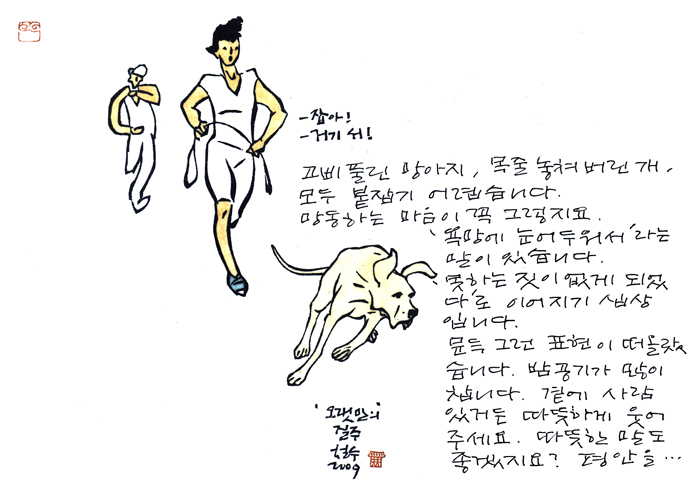 -잡아!
-거기 서!
고삐 풀린 망아지, 목줄 놓쳐버린 개,
모두 붙잡기 어렵습니다.
망동하는 마음이 꼭 그렇지요.
'욕망에 눈 어두워서'라는
말이 있습니다.
'못하는 짓이 없게 되었
다'로 이어지기 십상
입니다.
문득 그런 표현이 떠올랐
습니다. 밤공기가 많이
찹니다. 곁에 사람
있거든 따뜻하게 웃어
주세요. 따뜻한 말도
좋겠지요? 평안을…
'오랫만의'
질주
철수
2009